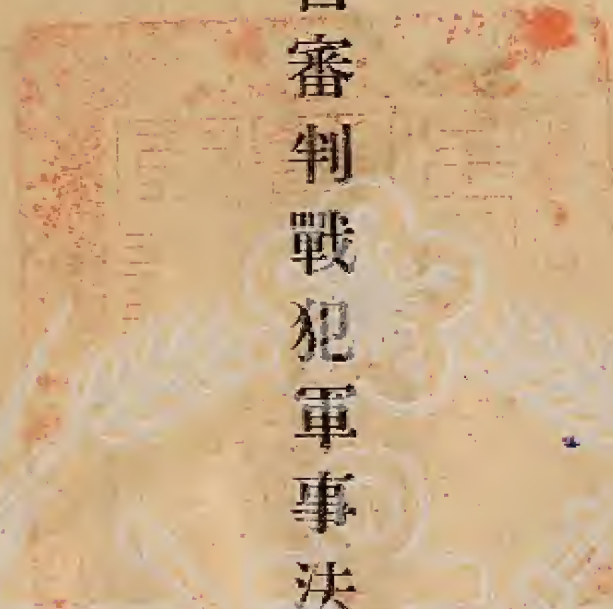 審判戰犯軍事法